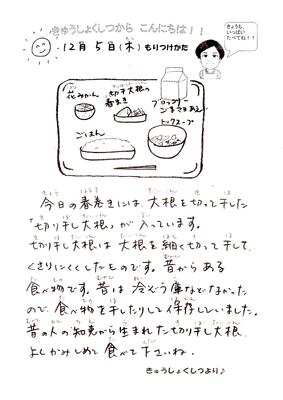 きゅうしょくしつから こんにちは!!
きょうも、
いっぱい
たべてね!!
12月 5日(木) もりつけかた
花みかん
切干大根の
春まき
ブロッコリー
ごまマヨあえ
トックスープ
ごはん
今日の春巻きには、大根を切って干した
"切り干し大根"が 入っています。
切り干し大根は 大根を細く切って干して、
くさりにくくしたものです。昔から ある
食べ物です。昔は、冷ぞう庫などなかった
ので、食べ物を干したりして保存していました。
昔の人の知恵から生まれた切り干し大根、
よくかみしめて 食べて下さいね。
きゅうしょくしつより♪